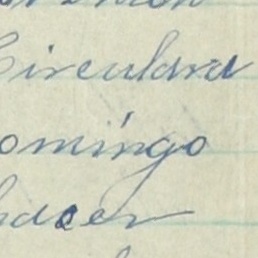 Circulara
omingo
hacer